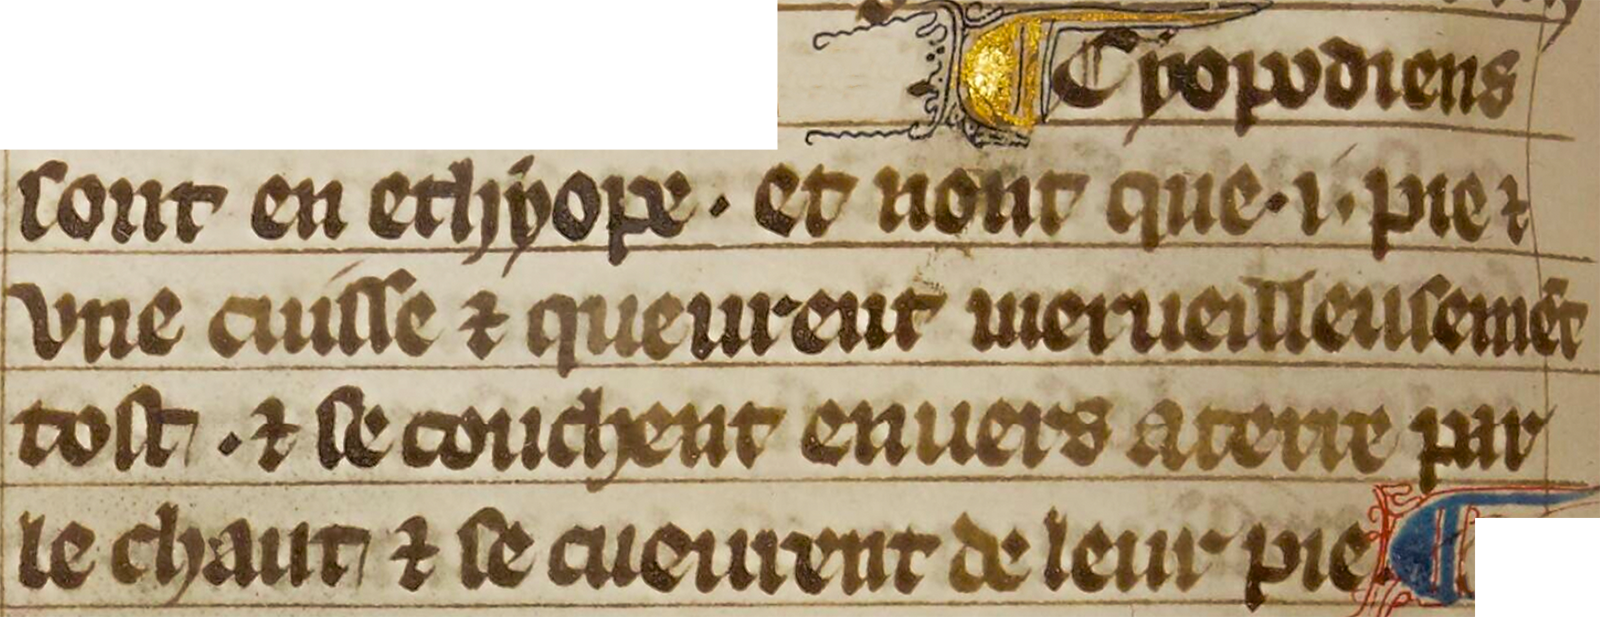 ¶ Cyopodiens
sont en ethyope · et nont que · i · pie ⁊
vne cuisse ⁊ queurent merueilleusemēt
tost · ⁊ se couchent enuers a terre par
le chaut ⁊ se cueurent de leur pie ¶